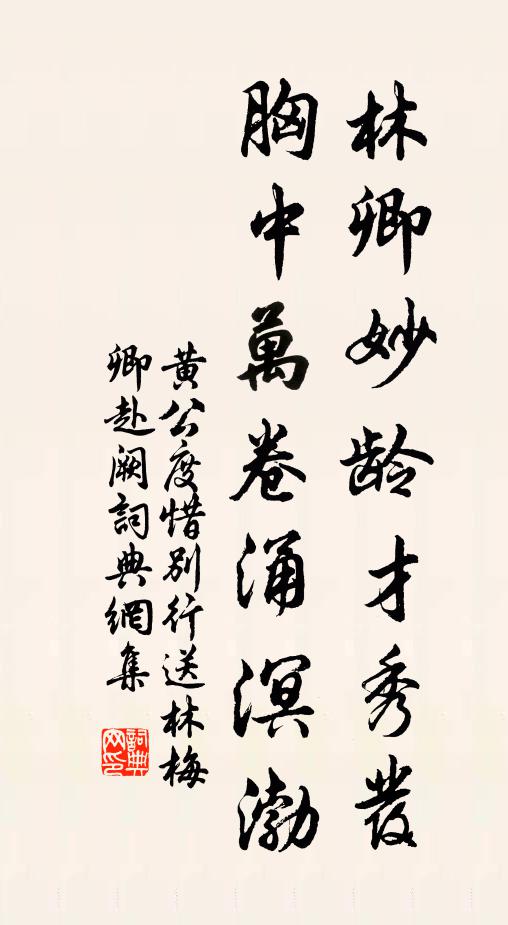 林卿妙龄才秀發
胸中萬卷涌溟渤
黄公度惜别行送林梅
卿赴阙詞典網集
詞典
网印